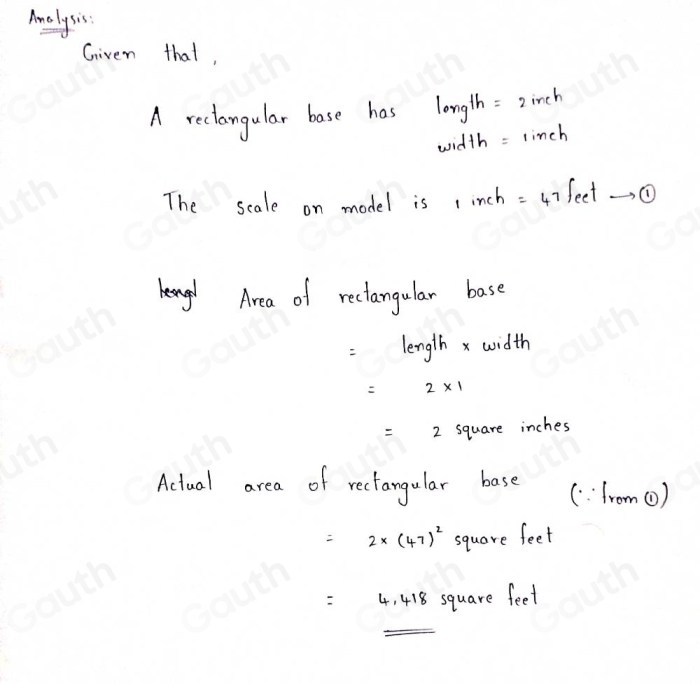 Analysis:
Given that,
A rectangular base has length = 2 inch
width = 1 inch
The scale on model is 1 inch = 47 feet → ①
Area of rectangular base
= length × width
= 2 × 1
= 2 square inches
Actual area of rectangular base (∵ from ①)
= 2 × (47)² square feet
= 4,418 square feet